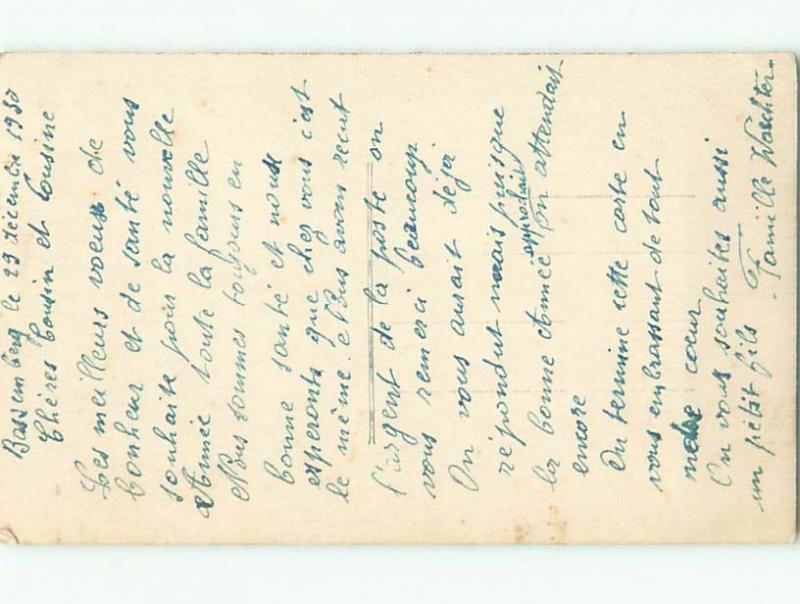 Bassemberg le 29 décembre 1930
Chères Cousin et Cousine
Les meilleurs voeux de
bonheur et de santé vous
souhaite pour la nouvelle
Année toute la famille
Nous sommes toujours en
bonne santé et nous
esperons que chez vous c'est
le même. Nous avons reçut
l'argent de la poste on
vous remerci beaucoup.
On vous aurait déja
répondut mais puisque
la bonne Année approchait on attendait
encore
On termine cette carte en
vous embrassant de tout
notre coeur
On vous souhaites aussi
un pétit fils. Famille Waechter.